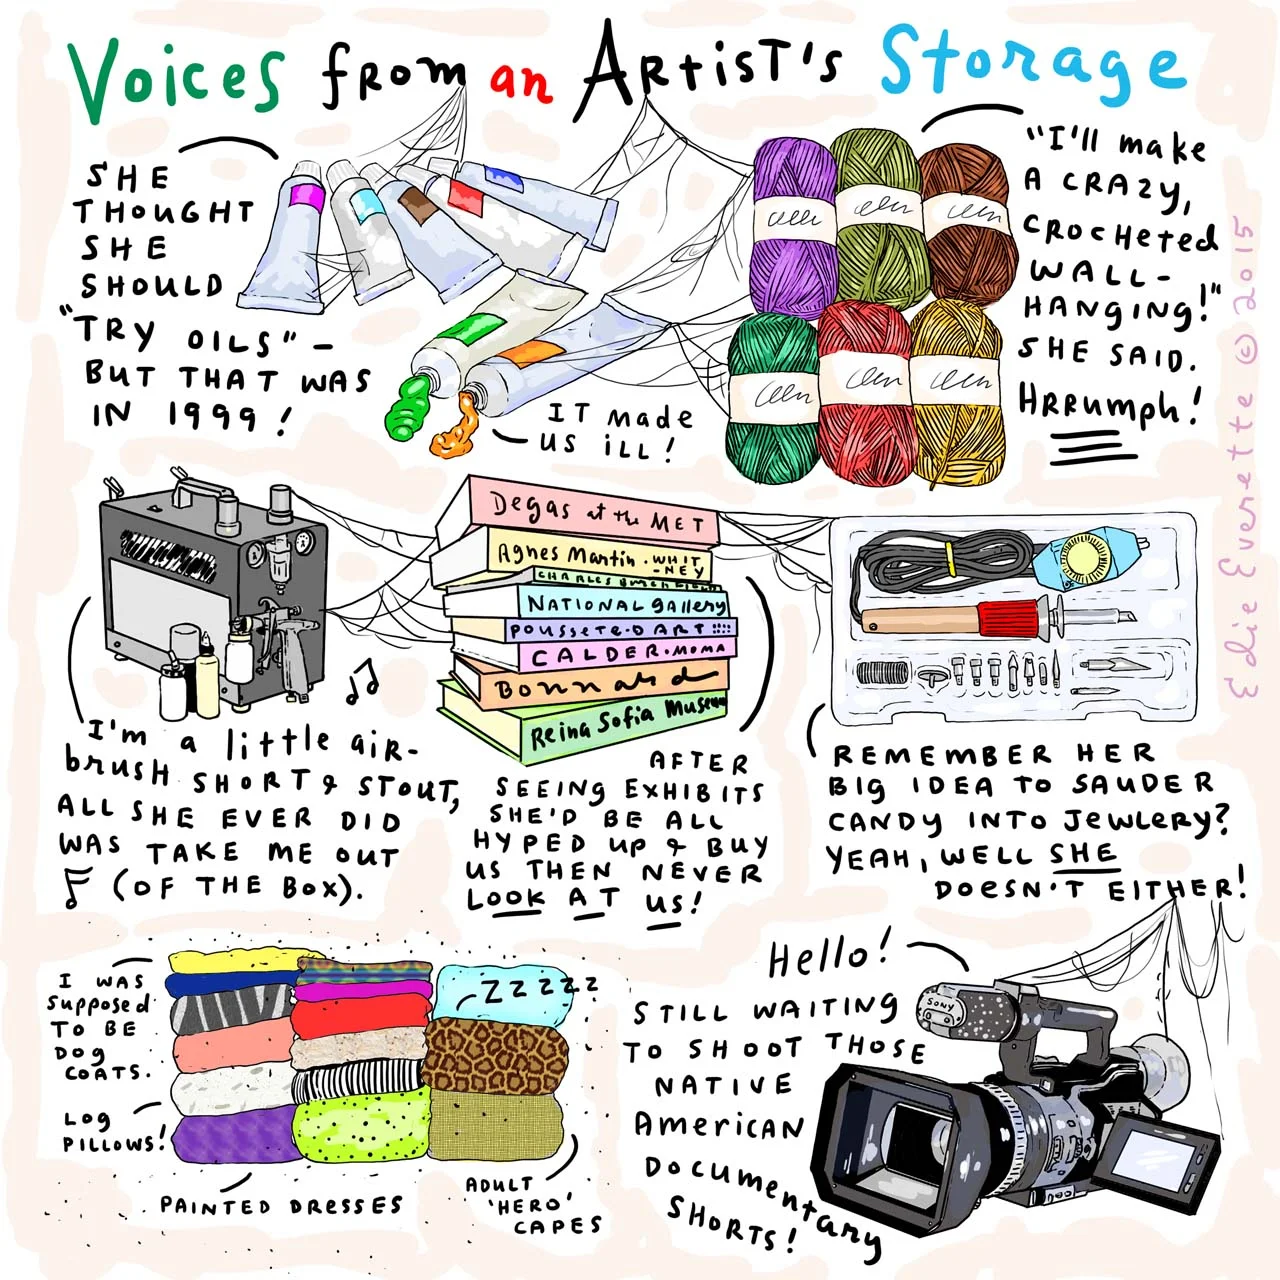 Voices from an Artist's Storage
SHE
THOUGHT
SHE
SHOULD
"TRY OILS" –
BUT THAT WAS
IN 1999!
IT made
US ILL!
"I'll make
A CRAZY,
CROCHETED
WALL-
HANGING!"
SHE SAID.
HRRUMPH!
Edie Everette © 2015
Degas at the MET
Agnes Martin · WHIT
-NEY
CHARLES
NATIONAL Gallery
POUSSETE-DART
CALDER·MOMA
Bonnard
Reina Sofia Museum
I'm a little air-
brush SHORT & STOUT,
ALL SHE EVER DID
WAS TAKE ME OUT
(OF THE BOX).
AFTER
SEEING EXHIBITS
SHE'D BE ALL
HYPED UP & BUY
US THEN NEVER
LOOK AT US!
REMEMBER HER
BIG IDEA TO SAUDER
CANDY INTO JEWLERY?
YEAH, WELL SHE
DOESN'T EITHER!
I WAS
Supposed
TO BE
DOG
COATS.
LOG
PILLOWS!
PAINTED DRESSES
ZZZZZZ
ADULT
'HERO'
CAPES
Hello!
STILL WAITING
TO SHOOT THOSE
NATIVE
AMERICAN
DOCUMENTARY
SHORTS!
SONY